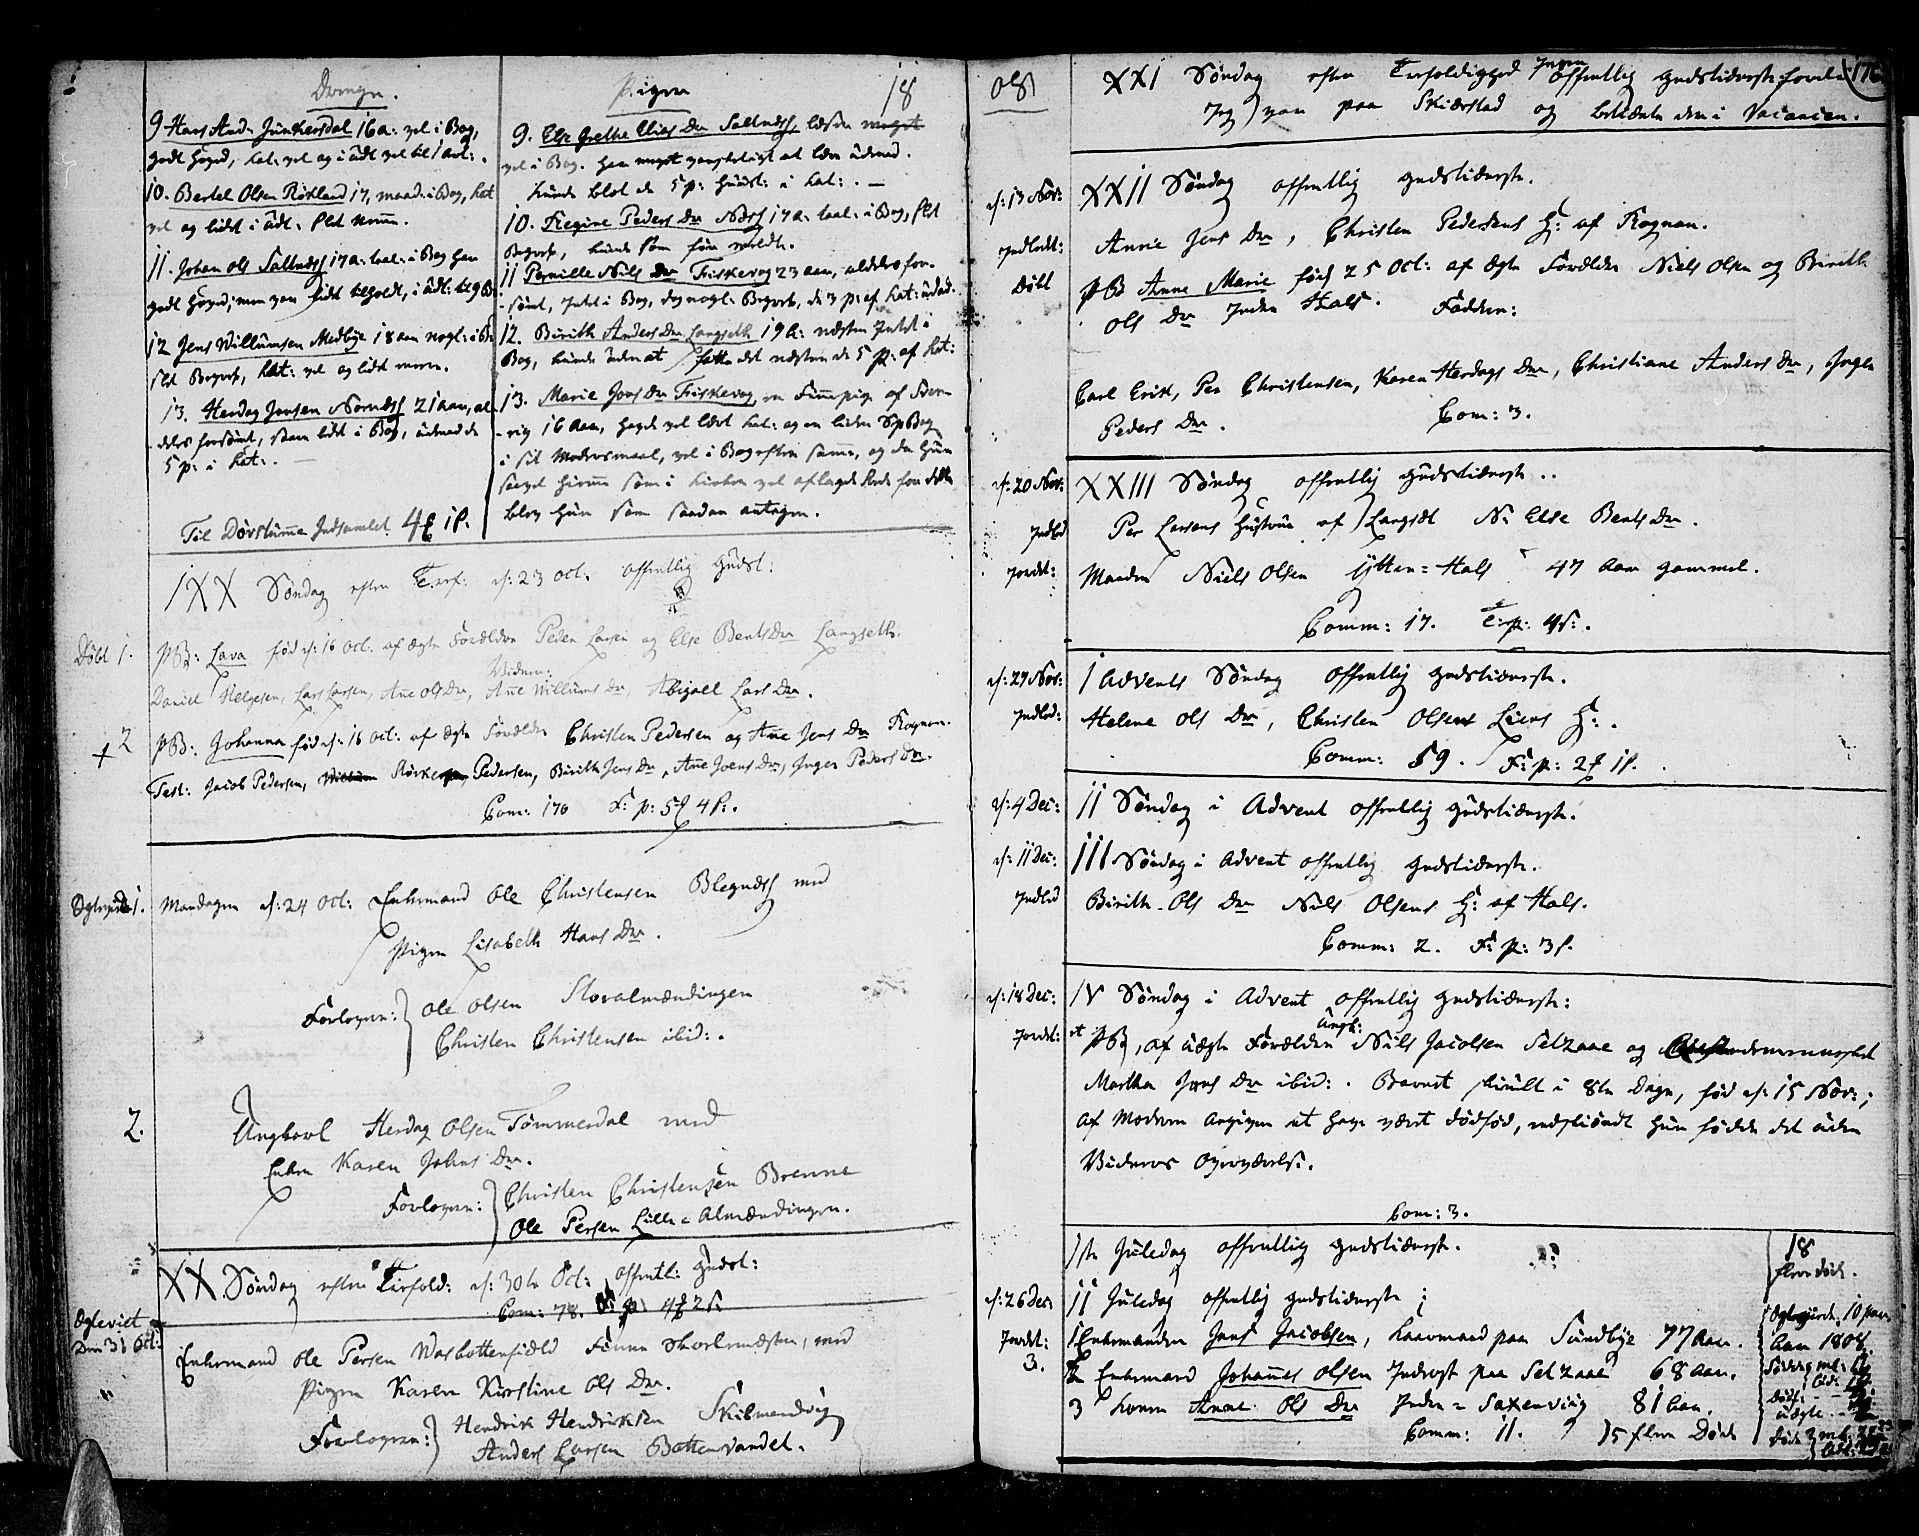 Drenge.
9 Hans And: Junkersdal 16 a: vel i Bog,
godt Hoved, Cat: vel og i udt vel til 1 Art: .
10. Bertel Olsen Rökland 17, maad. i Bog, Cat
vel og lidt i udt.
11. Johan Ols Saltnæss 17 a: taal: i Bog har
godt Hoved, men
12 Jens Willumsen Medbye 18 aar nogl: i
slet Begreb, Cat: vel og lidt meere.
13. Herdag Jensen Nornæss 21 aar, al
deles forsömt, stavr lidt i Bog, udenad de
5 p: i Cat: .
Til Dövstumme Indsamlet 4
Piger 18
9. Else Grethe Elias Dr Saltnæss, læser
vel i Bog. har meget vanskeligt at lære udenad.
kunde blot de 5 p: i Cat: . —
10. Regine Peders Dr Næss 17 a: taal: i Bog, slet
Begreb, kunde som för meldt.
11 Pernille Nils Dr Fiskevog 23 aar, aldeles for-
sömt, i Bog, dog nogl: Begreb, de 3 p: af Cat: udad.
12. Birith Anders Dr Langseth 19 a: næsten
Bog, kunde uden at fatte det næsten de 5 p: af Cat:
13. Marie Jons Dr Fiskevog, en Finnepige af Sver-
rig 16 aar, havde vel læst Cat: og en liden Sp Bog
i sit Modersmaal, vel i Bog efter samme, og da hun
saavel hiemme som i Kirken vel aflagde Rede for dette
blev hun som saadan antagen.
IXX Söndag efter Tref: d: 23 Oct. offentlig Gudst:
Döbt 1. PB: Lava föd d: 16 Oct. af ægte Forældre Peder Larsen og Else Bents Dr Langseth.
Vidner:
Daniel Helgesen, Lars Larsen, Ane Ols Dr, Ane Willums Dr, Abigael Lars Dr.
2 PB: Johanna föd d: 16 Oct: af ægte Forældre Christen Pedersen og Ane Jens Dr Rognan.
Test: Jacob Pedersen, Pedersen, Birith Jens Dr, Ane Joens Dr, Inger Peders Dr.
Com: 170 F: p: 5 4 s.
1. Mandagen d: 24 Oct: Enkemand Ole Christensen Blegnæss med
Pigen Lisabeth Hans Dr.
Forlovere: Ole Olsen Storalmændingen
Christen Christensen ibid: .
2. Ungkarl Herdag Olsen Tömmerdal med
Enken Karen Johns Dr.
Forlovere: Christen Christensen Brenne
Ole Persen Lille = Almændingen.
XX Söndag efter Trefold: d: 30te Oct: offentl: Gudst:
Com: 78. F: p: 4 2 s
Ægteviet
Den 31 Oct: Enkemand Ole Persen Wasbottenfiæld Finne med
Pigen Karen Kirstine Ols Dr.
Forlovere: Hendrik Hendriksen
Anders Larsen Bottenvandet.
08
176
XXI Söndag efter Trefoldighed Ingen offentlig Gudstieneste
Jeg var paa Skierstad og betiente den i Vacancen.
d: 13 Nov: XXII Söndag offentlig Gudstieneste.
Indledt: Anne Jens Dr, Christen Pedersens H: af Rognan.
Döbt PB Anne Marie föd 25 Oct: af ægte Forældre Niels Olsen og Birith
Ols Dr Indre Hals. Fadder:
Carl Erik, Per Christensen, Karen Herdags Dr, Christiane Anders Dr, Inger
Peders Dr. Com: 3.
d: 20 Nov: XXIII Söndag offentlig Gudstieneste ..
Indled Per Larsens Hustrue af Langset N: Else Bents Dr.
Jordet: Manden Niels Olsen Ytter = Hals 47 Aar gammel.
Comm: 17. T: p: 4 s: .
d: 27 Nov: I Advents Söndag offentlig Gudstieneste.
Indled: Helene Ols Dr, Christen Olsens Liens H: .
Comm: 59. F: p: 2 1 s.
d: 4 Dec: II Söndag i Advent offentlig Gudstieneste.
d: 11 Dec: III Söndag i Advent offentlig Gudstieneste.
Indled Birith Ols Dr Nils Olsens H: af Hals.
Comm: 2. F: p: 3 s.
d: 18 Dec: IV Söndag i Advent offentlig Gudstieneste:
Ungk:
Jordet: et PB, af uægte Forældre Nils Jacobsen Selzaae og
Martha Jens Dr ibid: . Barnet skiult i 8te Dage, föd d: 15 Nov: ;
af Moderen angiven at have været dödföd, endskiöndt hun födde det uden
Videres Overværelse.
Com: 3.
1ste Juledag offentlig Gudstieneste.
d: 26 Dec: II Juledag offentlig Gudstieneste:
Jordet: 1 Enkemanden Jens Jacobsen, Kaarmand paa Sundbye 77 Aar.
3. 2 Enkemand Johannes Olsen Inderst paa Selzaae 68 Aar.
3 Konen Anne Ols Dr Indre = Saxenvig 81 Aar.
Comm: 11. 5 flere Döde
18
flere döde.
10 par.
Aar 1808.